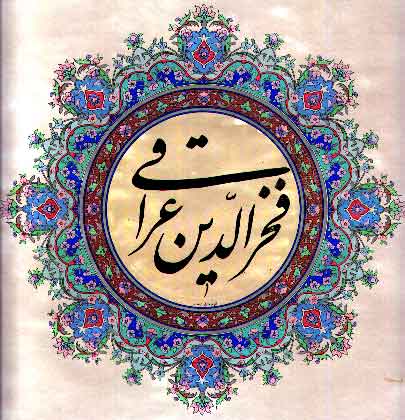 فخرالدّین عراقی